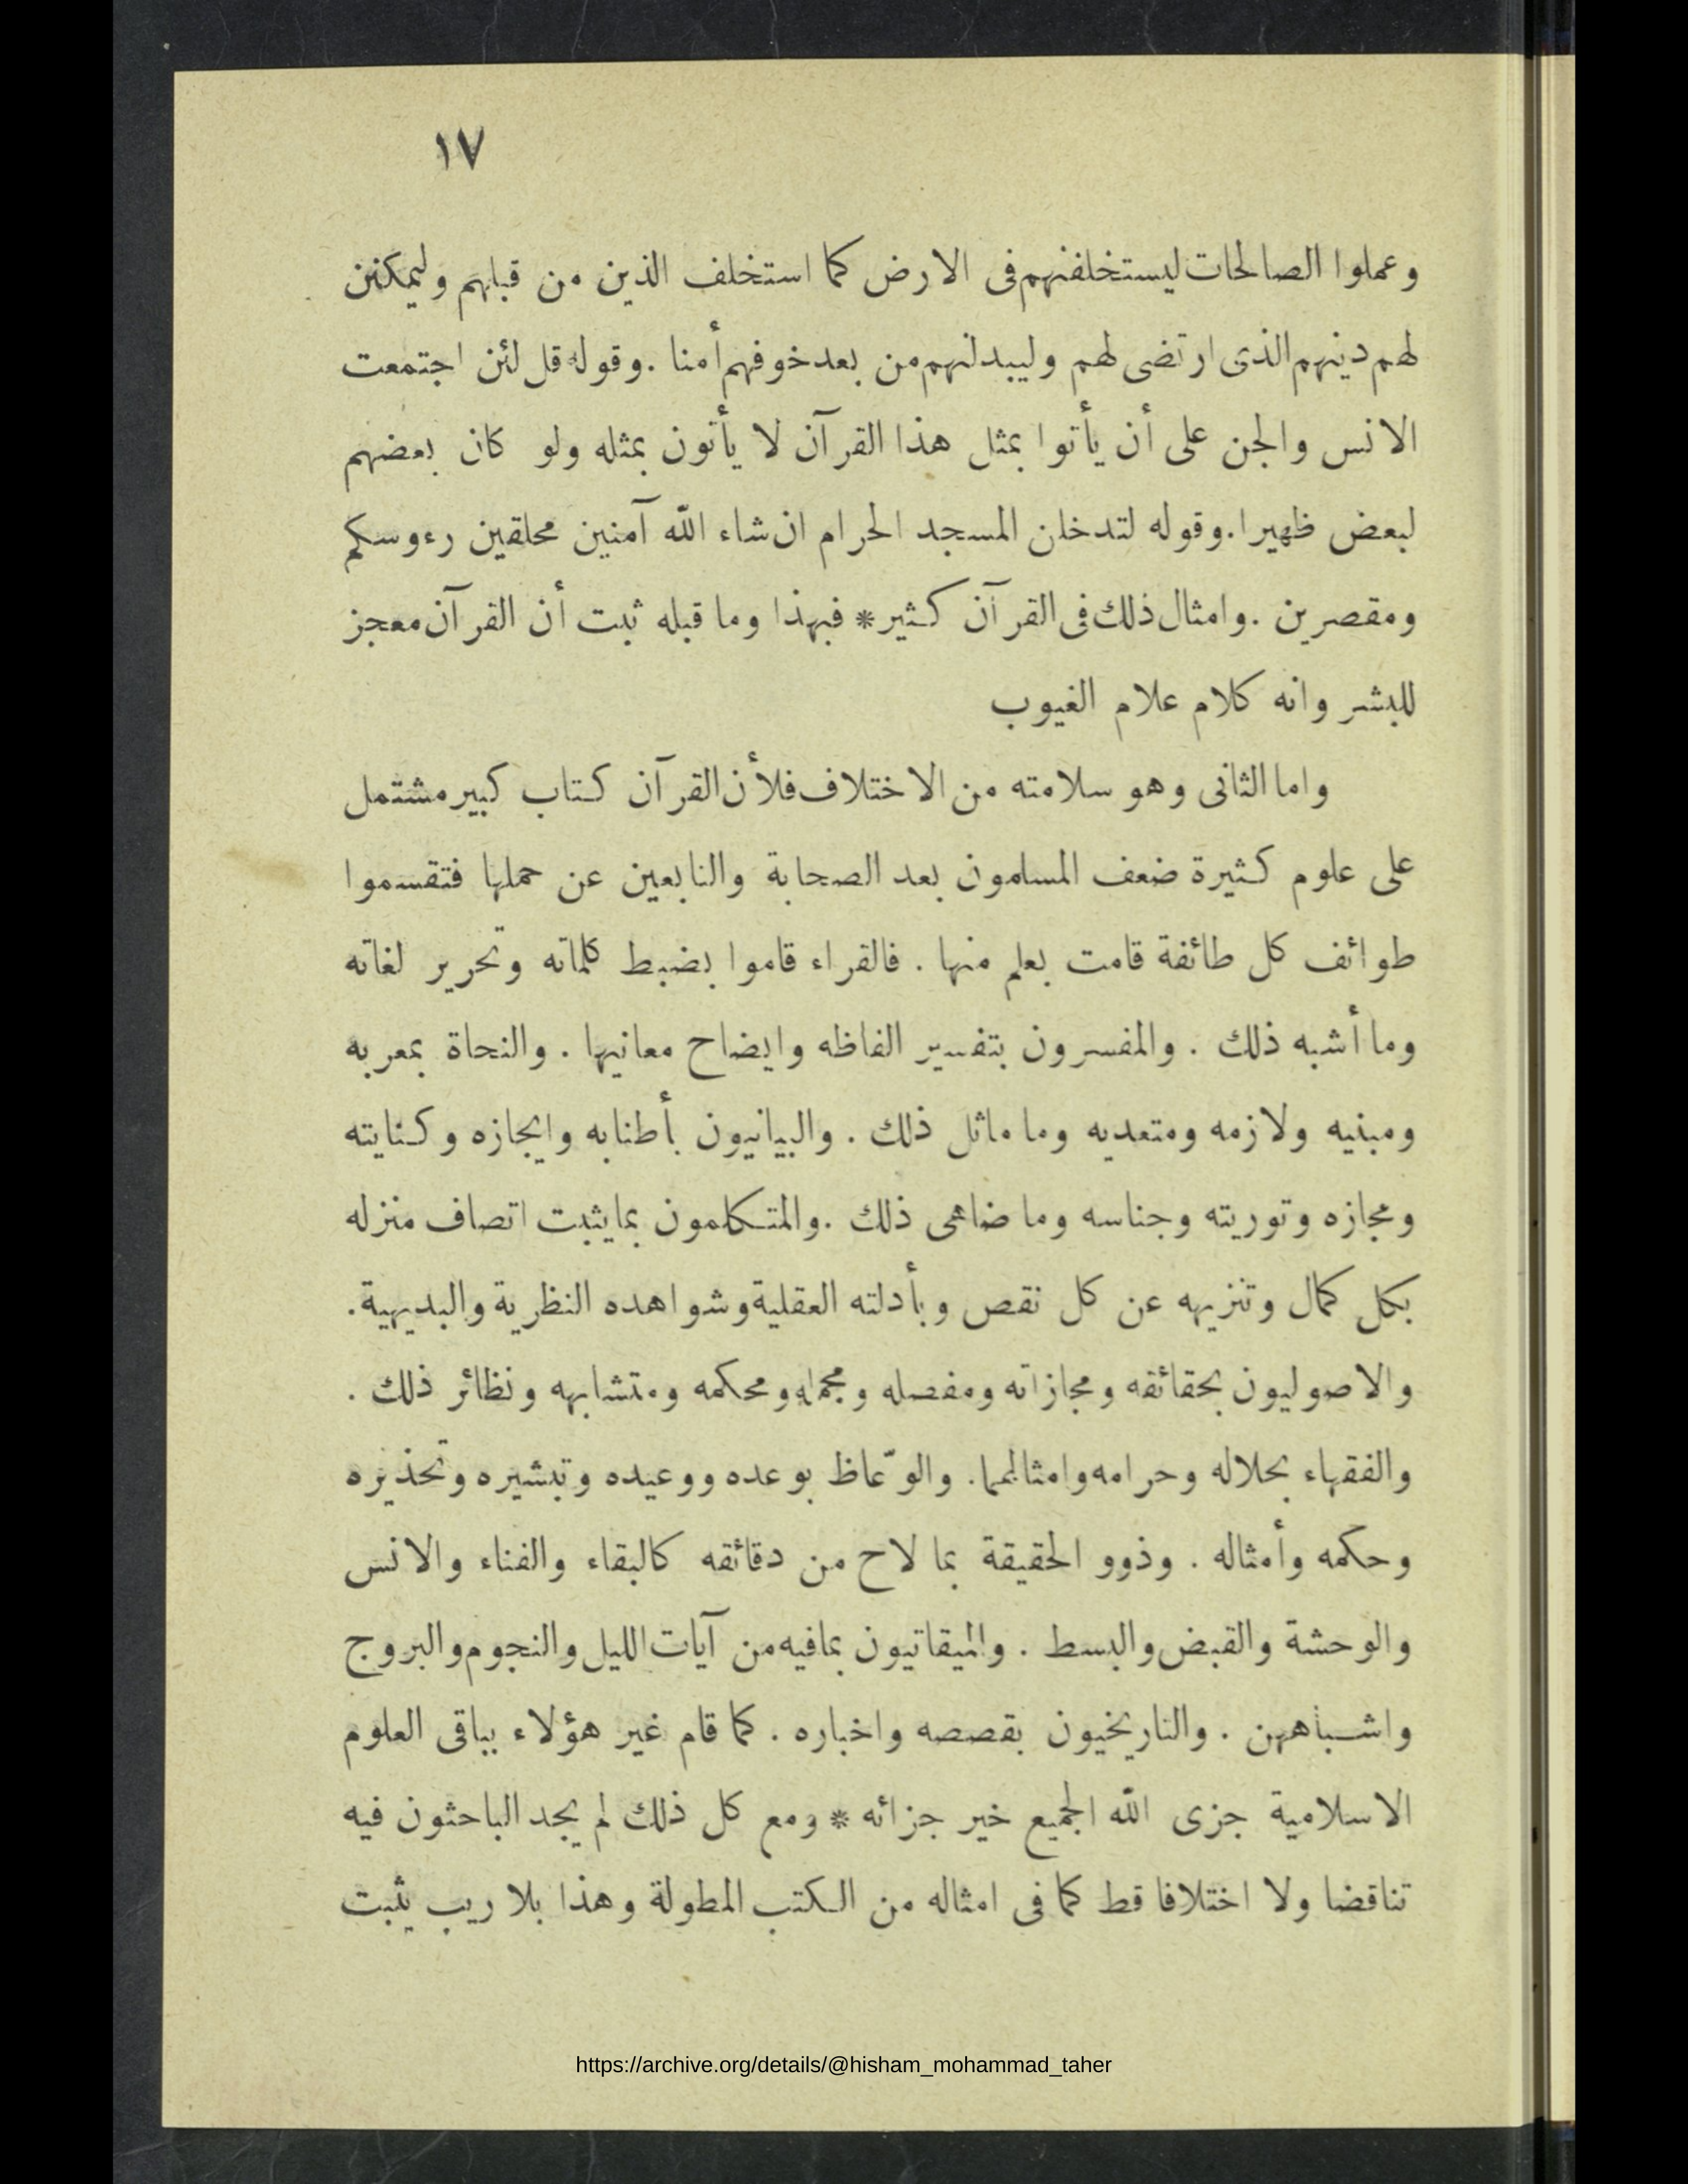 ١٧
وعملوا الصالحات ليستخلفنهم فى الارض كما استخلف الذين من قبلهم وليمكنن
لهم دينهم الذى ارتضى لهم وليبدلنهم من بعد خوفهم أمنا . وقوله قل لئن اجتمعت
الانس والجن على أن يأتوا بمثل هذا القرآن لا يأتون بمثله ولو كان بعضهم
لبعض ظهيرا . وقوله لتدخلن المسجد الحرام ان شاء الله آمنين محلقين رءوسكم
ومقصرين . وامثال ذلك فى القرآن كثير * فبهذا وما قبله ثبت أن القرآن معجز
للبشر وانه كلام علام الغيوب
واما الثانى وهو سلامته من الاختلاف فلأن القرآن كتاب كبير مشتمل
على علوم كثيرة ضعف المسلمون بعد الصحابة والتابعين عن حملها فتقسموا
طوائف كل طائفة قامت بعلم منها . فالقراء قاموا بضبط كلماته وتحرير لغاته
وما أشبه ذلك . والمفسرون بتفسير الفاظه وايضاح معانيها . والنحاة بمعربه
ومبنيه ولازمه ومتعديه وما ماثل ذلك . والبيانيون بأطنابه وايجازه وكنايته
ومجازه وتوريته وجناسه وما ضاهى ذلك . والمتكلمون بما يثبت اتصاف منزله
بكل كمال وتنزيهه عن كل نقص وبأدلته العقلية وشواهده النظرية والبديهية .
والاصوليون بحقائقه ومجازاته ومفصله ومجمله ومحكمه ومتشابهه ونظائر ذلك .
والفقهاء بحلاله وحرامه وامثالهما . والوّعاظ بوعده ووعيده وتبشيره وتحذيره
وحكمه وأمثاله . وذوو الحقيقة بما لاح من دقائقه كالبقاء والفناء والانس
والوحشة والقبض والبسط . والميقاتيون بما فيه من آيات الليل والنجوم والبروج
واشباههن . والتاريخيون بقصصه واخباره . كما قام غير هؤلاء بباقى العلوم
الاسلامية جزى الله الجميع خير جزائه * ومع كل ذلك لم يجد الباحثون فيه
تناقضا ولا اختلافا قط كما فى امثاله من الكتب المطولة وهذا بلا ريب يثبت
https://archive.org/details/@hisham_mohammad_taher